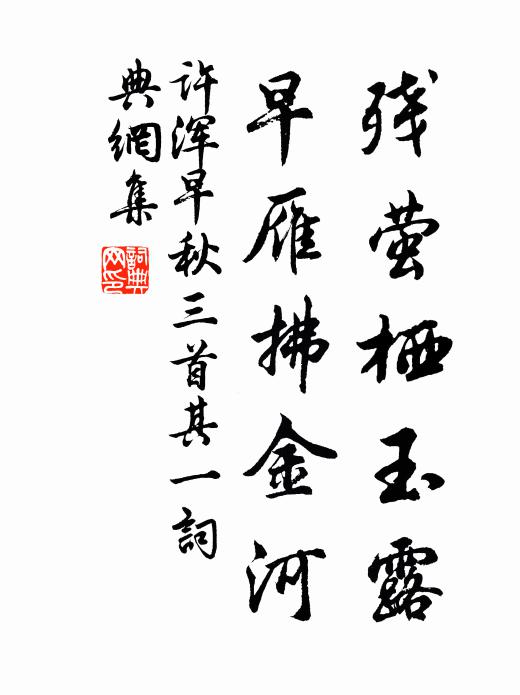 残萤栖玉露
早雁拂金河
许浑早秋三首其一詞
典網集
詞典网印